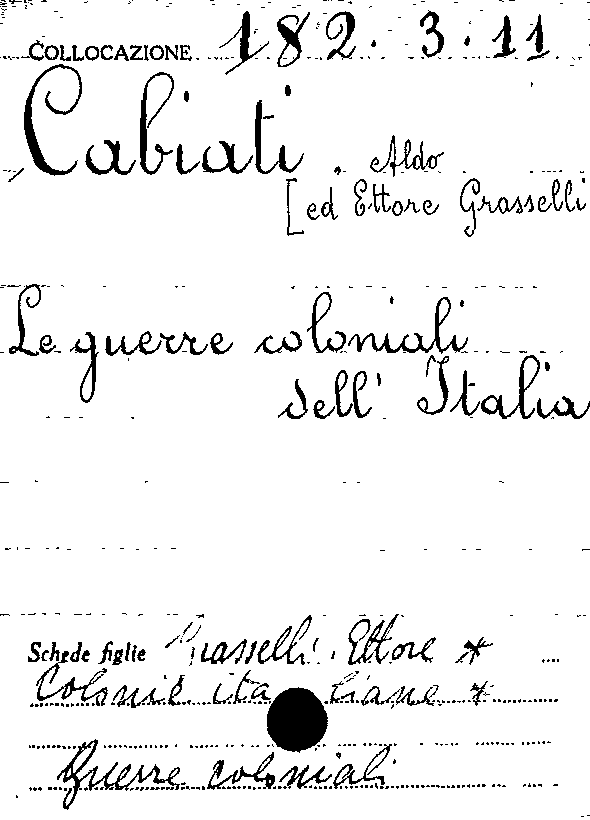 COLLOCAZIONE 182. 3. 11
Cabiati. Aldo
[ed Ettore Grasselli
Le guerre coloniali
dell' Italia
Schede figlie Grasselli. Ettore *
Colonie italiane *
Guerre coloniali